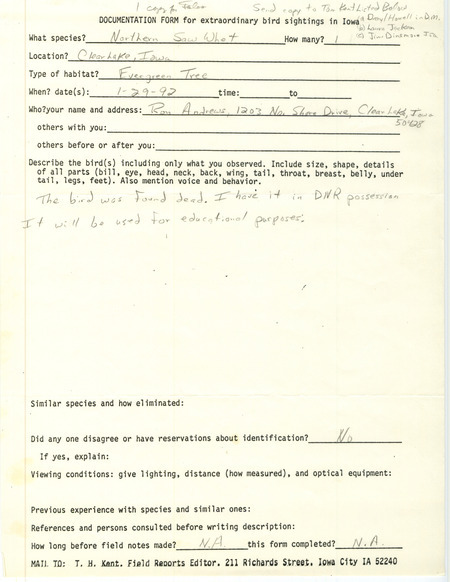 1 copy for             Send copy to Tom Kent Listed Below
DOCUMENTATION FORM for extraordinary bird sightings in Iowa
What species? Northern Saw Whet How many? 1
Location? Clear Lake, Iowa
Type of habitat? Evergreen Tree
When? date(s): 1-29-92 time: to
Who?your name and address: Ron Andrews, 1203 No. Shore Drive, Clear Lake, Iowa
50428
others with you:
others before or after you:
Describe the bird(s) including only what you observed. Include size, shape, details
of all parts (bill, eye, head, neck, back, wing, tail, throat, breast, belly, under
tail, legs, feet). Also mention voice and behavior.
The bird was found dead. I have it in DNR possession
It will be used for educational purposes.
Similar species and how eliminated:
Did any one disagree or have reservations about identification? No
If yes, explain:
Viewing conditions: give lighting, distance (how measured), and optical equipment:
Previous experience with species and similar ones:
References and persons consulted before writing description:
How long before field notes made? N.A. this form completed? N.A.
MAIL TO: T. H. Kent, Field Reports Editor, 211 Richards Street, Iowa City IA 52240